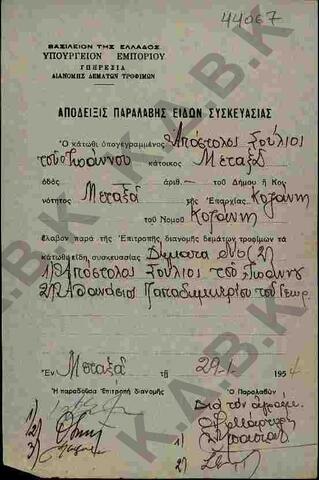 44067
ΒΑΣΙΛΕΙΟΝ ΤΗΣ ΕΛΛΑΔΟΣ
ΥΠΟΥΡΓΕΙΟΝ ΕΜΠΟΡΙΟΥ
ΥΠΗΡΕΣΙΑ
ΔΙΑΝΟΜΗΣ ΔΕΜΑΤΩΝ ΤΡΟΦΙΜΩΝ
ΑΠΟΔΕΙΞΙΣ ΠΑΡΑΛΑΒΗΣ ΕΙΔΩΝ ΣΥΣΚΕΥΑΣΙΑΣ
Ὁ κάτωθι ὑπογεγραμμένος Ἀπόστολος Σούλιος
τοῦ Ἰωάννου κάτοικος Μεταξᾶ
ὁδὸς ἀριθ. - τοῦ Δήμου ἢ Κοι
νότητος Μεταξᾶ τῆς Ἐπαρχίας Κοζάνης
τοῦ Νομοῦ Κοζάνης
ἔλαβον παρὰ τῆς Ἐπιτροπῆς διανομῆς δεμάτων τροφίμων τὰ
κάτωθι εἴδη συσκευασίας Δέματα δύο (2)
1) Ἀπόστολος Σούλιος τοῦ Ἰωάννου
2) Ἀθανάσιος Παπαδημητρίου τοῦ Γεωρ.
Ἐν Μεταξᾶ τῇ 29-1- 1954
Ἡ παραδοῦσα Ἐπιτροπὴ διανομῆς Ὁ Παραλαβών
1)
2)
3)
2)
Κ.Λ.Β.Κ